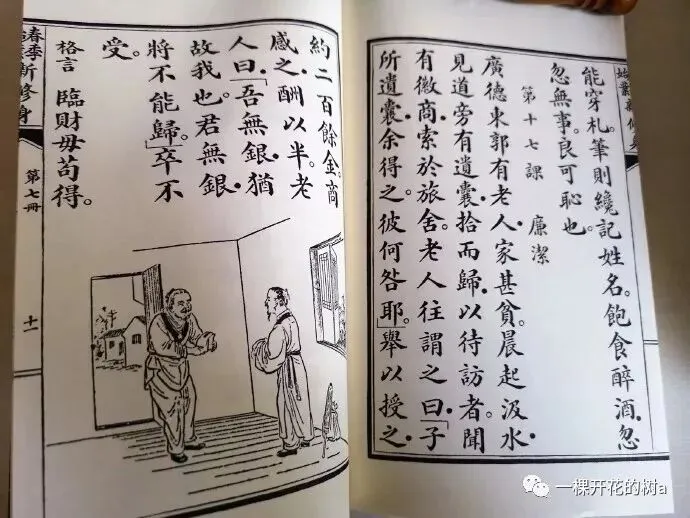 能穿札。筆則纔記姓名。飽食醉酒。忽
忽無事。良可恥也。
第十七課 廉潔
廣德東郭有老人。家甚貧。晨起汲水。
見道旁有遺囊。拾而歸。以待訪者。聞
有徽商。索於旅舍。老人往謂之曰。「子
所遺囊。余得之。彼何咎耶。」舉以授之。
約二百餘金。商
感之。酬以半。老
人曰。「吾無銀。猶
故我也。君無銀。
將不能歸。」卒不
受。
格言 臨財毋苟得。
新修身
第七冊
十一
一棵开花的树a